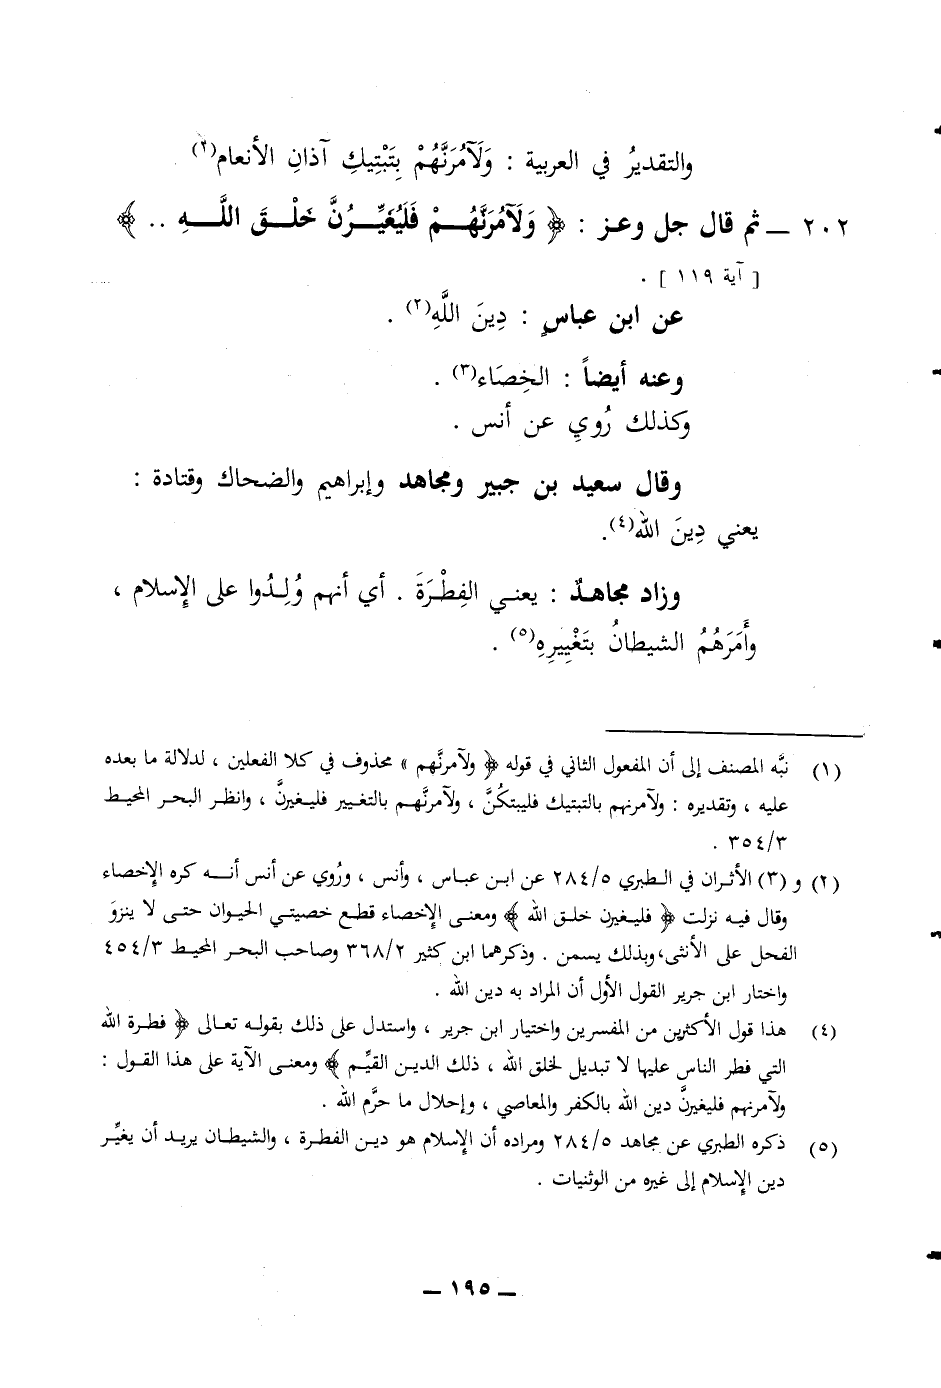 والتقديرُ في العربية : وَلَآمُرَنَّهُمْ بِتَبْتِيكِ آذانِ الأنعام(٢) .
٢٠٢ ــ ثم قال جل وعـز : ﴿ وَلَآمُرَنَّهُــمْ فَلَيُغَيِّــرُنَّ خَلْــقَ اللَّــهِ .. ﴾
[ آية ١١٩ ] .
عن ابن عباسٍ : دِينَ اللَّهِ(٢) .
وعنه أيضاً : الخِصَاء(٣) .
وكذلك رُوي عن أنس .
وقال سعيد بن جبير ومجاهد وإبراهيم والضحاك وقتادة :
يعني دِينَ الله(٤).
وزاد مجاهدٌ : يعنـي الفِطْرَةَ . أي أنهم وُلِـدُوا على الإِسلام ،
وأَمَرَهُمُ الشيطانُ بتَغْيِيرِهِ(٥) .
(١) نبَّه المصنف إلى أن المفعول الثاني في قوله ﴿ ولآمرنَّهم » محذوف في كلا الفعلين ، لدلالة ما بعده
عليه ، وتقديره : ولآمرنهم بالتبتيك فليبتكُنَّ ، ولآمرنَّهـم بالتغيير فليغيرنَّ ، وانظـر البحـر المحيـط
٣٥٤/٣ .
(٢) و (٣) الأثـران في الـطبري ٢٨٤/٥ عن ابـن عبـاس ، وأنس ، ورُوي عن أنس أنـــه كره الإخصاء
وقال فيـه نزلـت ﴿ فليـغيرن خلـق الله ﴾ ومعنـى الإخصاء قطـع خصيتي الحيوان حتـى لا ينزوَ
الفحل على الأنثى،وبذلك يسمن . وذكرهما ابن كثير ٣٦٨/٢ وصاحب البحر المحيـط ٤٥٤/٣
واختار ابن جرير القول الأول أن المراد به دين الله .
(٤) هذا قول الأكثرين من المفسرين واختيار ابن جرير ، واستدل على ذلك بقولـه تعـالى ﴿ فطـرة الله
التي فطر الناس عليها لا تبديل لخلق الله ، ذلك الديـن القيِّـم ﴾ ومعنـى الآية على هذا القـول :
ولآمرنهم فليغيرنَّ دين الله بالكفر والمعاصي ، وإحلال ما حرَّم الله .
(٥) ذكره الطبري عن مجاهد ٢٨٤/٥ ومراده أن الإسلام هو ديـن الفطـرة ، والشيطـان يريـد أن يغيِّـر
دين الإِسلام إلى غيره من الوثنيات .
ــ ١٩٥ ــ